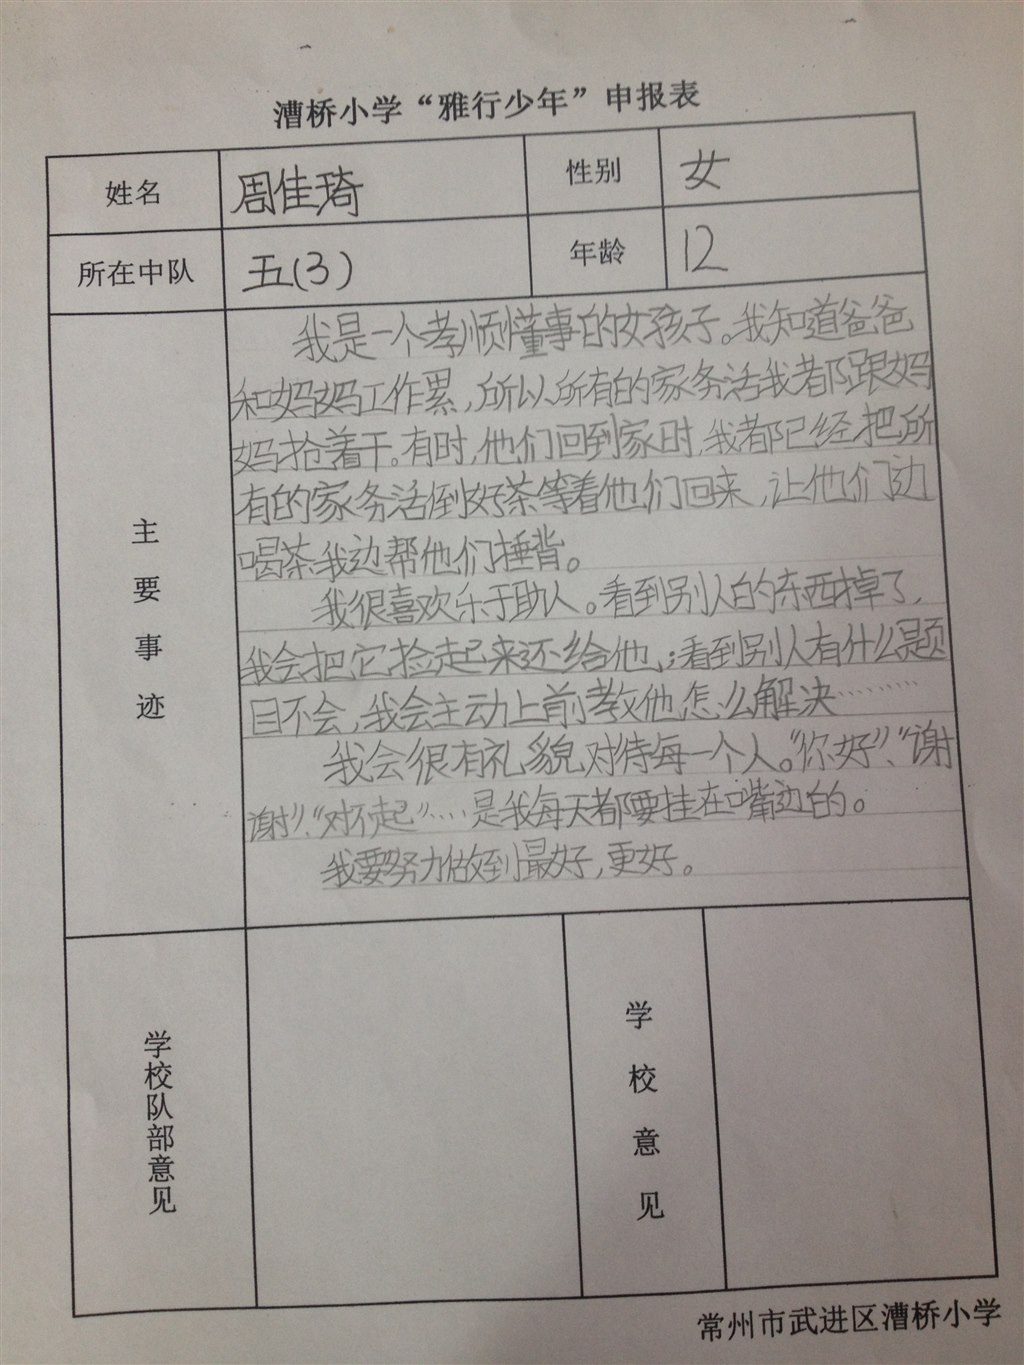 漕桥小学“雅行少年”申报表
姓名 周佳琦 性别 女
所在中队 五(3) 年龄 12
主要事迹
我是一个孝顺懂事的女孩子。我知道爸爸
和妈妈工作累,所以所有的家务活我都跟妈
妈抢着干。有时,他们回到家时,我都已经把所
有的家务活倒好茶等着他们回来,让他们边
喝茶我边帮他们捶背。
我很喜欢乐于助人。看到别人的东西掉了,
我会把它捡起来还给他,;看到别人有什么题
目不会,我会主动上前教他怎么解决………
我会很有礼貌对待每一个人。“你好”、“谢
谢”、“对不起”……是我每天都要挂在嘴边的。
我要努力做到最好,更好。
学校队部意见
学校意见
常州市武进区漕桥小学